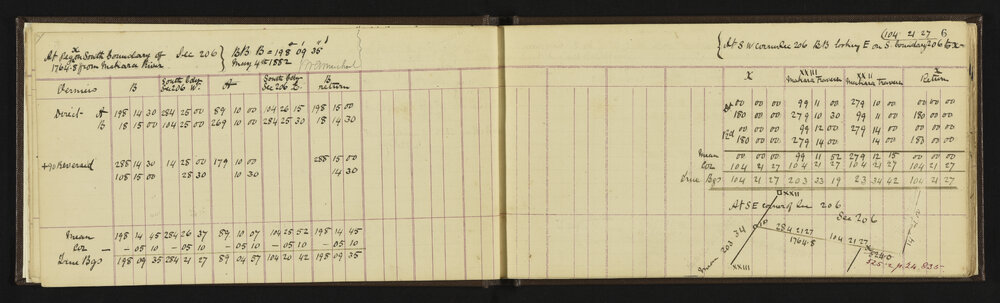 At Peg on South Boundary of Sec 206 } B.B. B = 198° 09' 35"
1764.8 from Makara River May 4th 1882
Verniers B South Bdy Sec 206 W. A South Bdy Sec 206 E. B return
Direct A 198 14 30 284 25 00 89 10 00 104 26 15 198 15 00
B 18 15 00 104 25 00 269 10 00 284 25 30 18 14 30
+90 Reversed 288 14 30 14 28 00 179 10 00 288 15 00
108 15 00 28 30 10 30 14 30
Mean 198 14 45 284 26 37 89 10 07 104 25 52 198 14 45
Cor — — 05 10 — 05 10 — 05 10 — 05 10 — 05 10
True Bgs 198 09 35 284 21 27 89 04 57 104 20 42 198 09 35
104 21 27 6
{ At S W corner Sec 206 B.B. looking E on S. boundary 206 to x
X XXIII Makara Traverse XXII Makara Traverse X Return
00 00 00 99 11 00 279 10 00 00 00 00
180 00 00 279 10 30 99 11 00 180 00 00
00 00 00 99 12 00 279 14 00 00 00
180 00 00 279 14 00 14 00 183 00 00
Mean 00 00 00 99 11 52 279 12 15 00 00 00
Cor 104 21 27 104 21 27 104 21 27 104 21 27
True Bgs 104 21 27 203 33 19 23 34 42 104 21 27
XXII
At S E corner of Sec 206
Sec 206
284 21 27
1764.8
104 21 27
x
Mean 203 34
XXIII
p. 24,